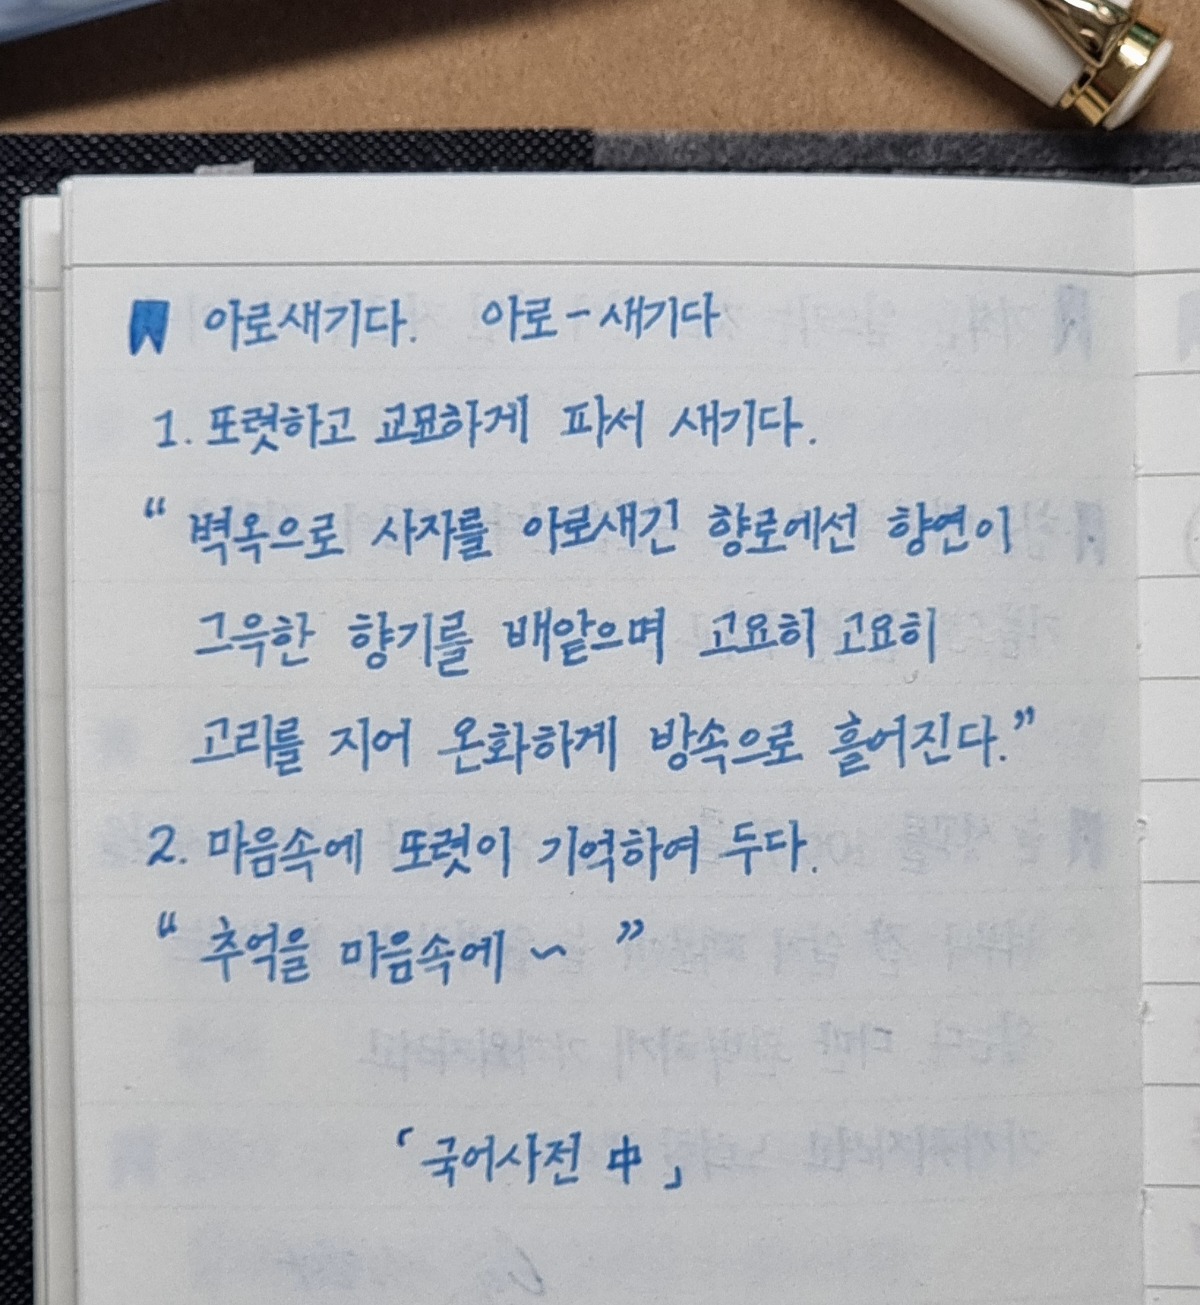 아로새기다. 아로-새기다
1. 또렷하고 교묘하게 파서 새기다.
“벽옥으로 사자를 아로새긴 향로에선 향연이
그윽한 향기를 배앝으며 고요히 고요히
고리를 지어 온화하게 방속으로 흩어진다.”
2. 마음속에 또렷이 기억하여 두다.
“추억을 마음속에 ~ ”
「국어사전 中」